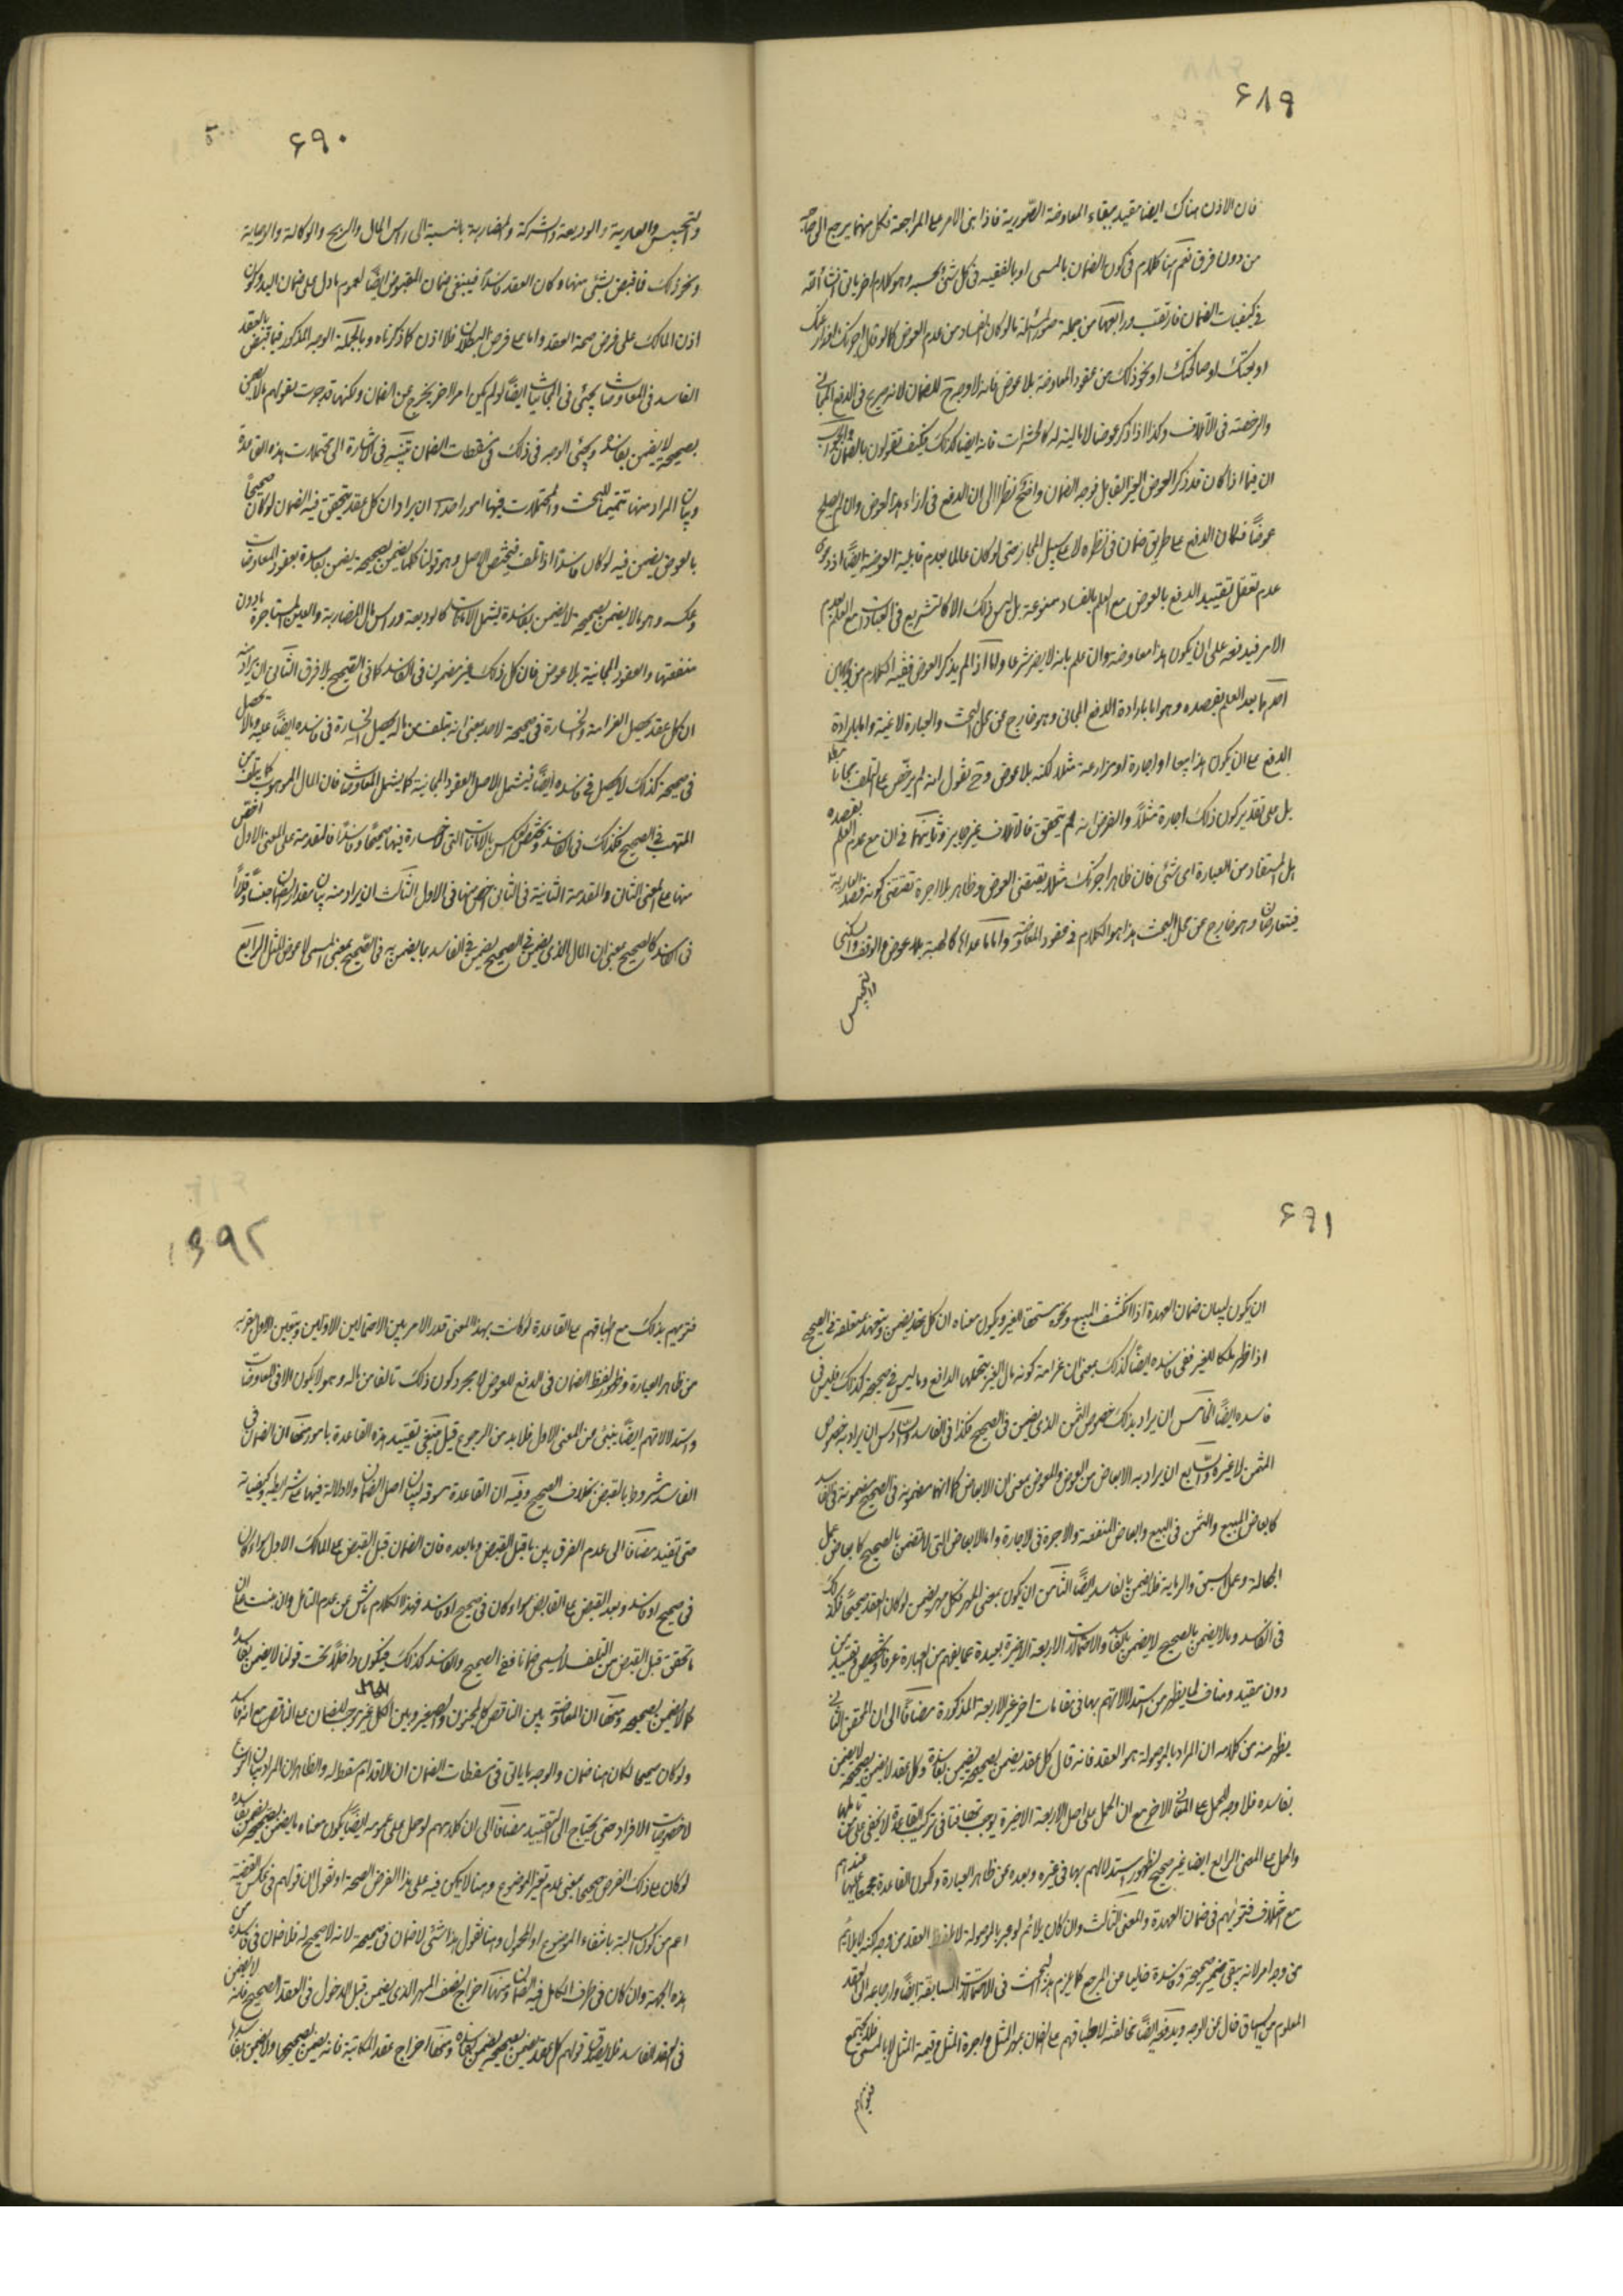 ۶۸۹
فان الاذن هناك ايضا مقيد ببقاء المعاوضة الصورية فاذا بنى الامر على المراجعة فكل منهما يرجع الى
من دون فرق نعم هنا كلام فى كون الضمان بالمسمى او بالقيمة فى كل شئ بحسبه وهو كلام اخر ياتى انشاء الله
فى كيفيات الضمان فارتقب ورابعها من جملة صور المسئلة ما لو كان الفساد من عدم العوض كما لو قال اجرتك
او بعتك او صالحتك او نحو ذلك من عقود المعاوضة بلا عوض فانه لا وجه ح للضمان لانه صريح فى الدفع المجانى
والرخصة فى الاتلاف وكذا اذا ذكر عوضا لا مالية له كالحشرات فانه ايضا كذلك فكيف تقولون بالضمان والجواب
ان فيما اذا كان قد ذكر العوض الغير القابل فوجه الضمان واضح نظرا الى ان الدفع فى ازاء هذا العوض وان لم يصلح
عوضًا فكان الدفع على طريق ضمان فى نظره لا على سبيل المجاز حتى لو كان عالما بعدم قابلية العوضية ايضًا اذ دعوى
عدم تعقل تقييد الدفع بالعوض مع العلم بالفساد ممنوعة بل ليس ذلك الا كالتشريع فى العبادات مع العلم بعدم
الامر فيدفعه على ان يكون هذا معاوضة وان علم بانه لا يصير شرعا واما اذا لم يذكر العوض ففيه الكلام من وجهين
احدهما بعد العلم بقصده وهو اما بارادة الدفع المجانى وهو خارج عن محل البحث والعبارة لاغية واما بارادة
الدفع على ان يكون هذا بيعا او اجارة او مزارعة مثلا لكنه بلا عوض وح نقول انه لم يرخص على التلف مجانا
بل على تقدير كون ذلك اجارة مثلًا والفرض انه لم يتحقق فالاتلاف غير جايز وثانيهما فى ان مع عدم العلم بقصده
هل المستفاد من العبارة اى شئ فان ظاهر اجرتك مثلا يقتضى العوض وظاهر بلا اجرة يقتضى كونه قصد العارية
فيتعارضان وهو خارج عن محل البحث هذا هو الكلام فى عقود المعاوضة واما ما عداها كالهبة بلا عوض والوقف والسكنى
والتحبيس
۶۹۰
والتحبيس والعارية والوديعة والشركة والمضاربة بالنسبة الى راس المال والربح والوكالة والوصاية
ونحو ذلك فاقبض بشئ منها وكان العقد فاسدًا فينبغى ضمان المقبوض ايضًا لعموم ما دل على ضمان اليد وكون
اذن المالك على فرض صحة العقد واما على فرض البطلان فلا اذن كما ذكرناه وبالجملة الوجه المذكور فيما قبض بالعقد
الفاسد فى المعاوضات يجئ فى المجانيات ايضًا لو لم يكن امر اخر يخرج عن الضمان ولكنها قد خرجت بقولهم ما لا يضمن
بصحيحه لا يضمن بفاسده ويجئ الوجه فى ذلك فى مسقطات الضمان تنبيه فى الاشارة الى محتملات هذه القاعدة
وبيان المراد منها تتميما للبحث والمحتملات فيها امور احدها ان يراد ان كل عقد يتحقق فيه الضمان لو كان صحيحًا
بالعوض يضمن فيه لو كان فاسدًا اذا تلف فيختص الاصل وهو قولنا كلما يضمن بصحيحه يضمن بفاسده بعقود المعاوضات
وعكسه وهو ما لا يضمن بصحيحه لا يضمن بفاسده يشمل الامانات كالوديعة وراس مال المضاربة والعين المستاجرة ما دون
منفعتها والعقود المجانية بلا عوض فان كل ذلك غير مضمون فى الفاسد كما فى الصحيح بلا فرق الثانى ان يراد منه
ان كل عقد يحصل الغرامة والخسارة فى صحيحه لاحد بمعنى انه يتلف من ماله يحصل الخسارة فى فاسده ايضًا عليه وما لا تحصل
فى صحيحه كذلك لا يحصل فى فاسده ايضًا فيشمل الاصل العقود المجانية كما يشمل المعاوضات فان المال الموهوب كما يتلف من
المتهب فى الصحيح فكذلك فى الفاسد ويختص العكس بالامانات التى لا خسارة فيها صحيحًا وفاسدًا فالمقدمة على المعنى الاول اخص
منها على المعنى الثانى والمقدمة الثانية فى الثانى اخص منها فى الاول الثالث ان يراد منه بيان مقدار الضمان جنسًا وقدرًا
فى الفاسد كالصحيح بمعنى ان المال الذى يضمن فى الصحيح يضمن فى الفاسد بما يضمن به فى الصحيح بمعنى المسمى لا عوض المثل الرابع
۶۹۱
ان يكون لبيان ضمان العهدة اذا انكشف المبيع ونحوه مستحقا للغير ويكون معناه ان كل عقد يضمن ويتعهد متعلقه فى الصحيح
اذا ظهر ملكا للغير ففى فاسده ايضًا كذلك بمعنى ان غرامة كونه مال الغير يتحملها الدافع وما ليس فى صحيحه كذلك فليس فى
فاسده ايضًا الخامس ان يراد بذلك خصوص الثمن الذى يضمن فى الصحيح فكذا فى الفاسد والسادس ان يراد به خصوص
المثمن لا غيره والسابع ان يراد به الابعاض من العوض والمعوض بمعنى ان الابعاض كما انها مضمونة فى الصحيح مضمونة فى الفاسد
كابعاض المبيع والثمن فى البيع وابعاض المنفعة والاجرة فى الاجارة واما الابعاض التى لا تضمن بالصحيح كابعاض عمل
الجعالة وعمل السبق والرماية فلا يضمن بالفاسد ايضًا الثامن ان يكون بمعنى المهر فكل مهر يضمن لو كان العقد صحيحًا فكذلك
فى الفاسد وما لا يضمن بالصحيح لا يضمن بالفاسد والاحتمالات الاربعة الاخيرة بعيدة عما يفهم من العبارة عرفا وتخصيص وتقييد من
دون مقيد ومناف لما يظهر من استدلالاتهم بها فى مقامات اخر غير الاربعة المذكورة مضافًا الى ان المحقق الثانى
يظهر منه من كلامه ان المراد بالموصولة هو العقد فانه قال كل عقد يضمن بصحيحه يضمن بفاسده وكل عقد لا يضمن بصحيحه لا يضمن
بفاسده فلا وجه للحمل على المعانى الاخر مع ان الحمل على احد الاربعة الاخيرة يوجب تهافتا فى تركيب القاعدة لا يخفى على من تاملها
والحمل على المعنى الرابع ايضا غير صحيح لظهور استدلالهم بها فى غيره وبعده عن ظاهر العبارة وكون القاعدة مجمعا عليها عندهم
مع اختلاف فتويهم فى ضمان العهدة والمعنى الثالث وان كان يلائم لو عبر بالموصولة لا بلفظ العقد من وجه لكنه لا يلائم
من وجه اخر لانه يبقى ضمير صحيحه وفاسده خاليا من المرجع كما يلزم هذا البحث فى الاحتمالات السابقة ايضًا وارجاعه الى العقد
المعلوم من السياق خال عن الوجه ويدفعه ايضًا مخالفته لاطباقهم على الضمان بمهر المثل واجرة المثل وقيمة المثل لا بالمسمى فلا يجتمع
فتويهم
۶۹۲
فتويهم بذلك مع اطباقهم على القاعدة لو كانت بهذا المعنى فدار الامر بين الاحتمالين الاولين ويتعين الاول لقربه
من ظاهر العبارة وظهور لفظ الضمان فى الدفع للعوض لا مجرد كون ذلك تالفا من ماله وهو لا يكون الا فى المعاوضات
واستدلالاتهم ايضًا ينبئ عن المعنى الاول فلا بد من الرجوع قيل ينبغى تقييد هذه القاعدة بامور منها ان الضمان فى
الفاسد مشروط بالقبض بخلاف الصحيح وفيه ان القاعدة مسوقة لبيان اصل الضمان ولا دلالة فيها على شرايطه وكيفياته
حتى تفيد مضافا الى عدم الفرق بين ما قبل القبض وما بعده فان الضمان قبل القبض على المالك الاول سواء كان
فى صحيح او فاسد وبعد القبض على القابض سواء كان فى صحيح او فاسد فهذا الكلام ناش عن عدم التامل وان منعت ان
ما تحقق قبل القبض من التلف لا يسمى ضمانا ففى الصحيح والفاسد كذلك فيكون داخلًا تحت قولنا لا يضمن بفاسده
كما لا يضمن بصحيحه ومنها ان المعاوضة بين الناقص كالمجنون والصغير وبين الكامل غير موجب للضمان على الناقص مع انه فاسد
ولو كان صحيحا لكان هنا ضمان والوجه ما ياتى فى مسقطات الضمان ان الاقدام مسقط له والظاهر ان المراد بيان النوع
لا خصوصيات الافراد حتى يحتاج الى التقييد مضافا الى ان كلامهم لو حمل على عمومه ايضًا يكون معناه ما يضمن بصحيحه يضمن بفاسده
لو كان على ذلك الفرض صحيحا بمعنى عدم تغير الموضوع وهنا لا يمكن فيه على هذا الفرض الصحة او نقول ان قولهم فى عكس القضية
اعم من كون السالبة بانتفاء الموضوع او المحمول وهنا نقول هذا شئ لا ضمان فى صحيحه لانه لا صحيح له فلا ضمان فى فاسده من
هذه الجهة وان كان فى طرف الكامل فيه الضمان ومنها اخراج نصف المهر الذى يضمن قبل الدخول فى العقد الصحيح فانه لا يضمن
فى العقد الفاسد فلا يصدق قولهم كل عقد يضمن بصحيحه يضمن بفاسده ومنها اخراج عقد المكاتبة فانه يضمن بصحيحها ولا يضمن بفاسدها